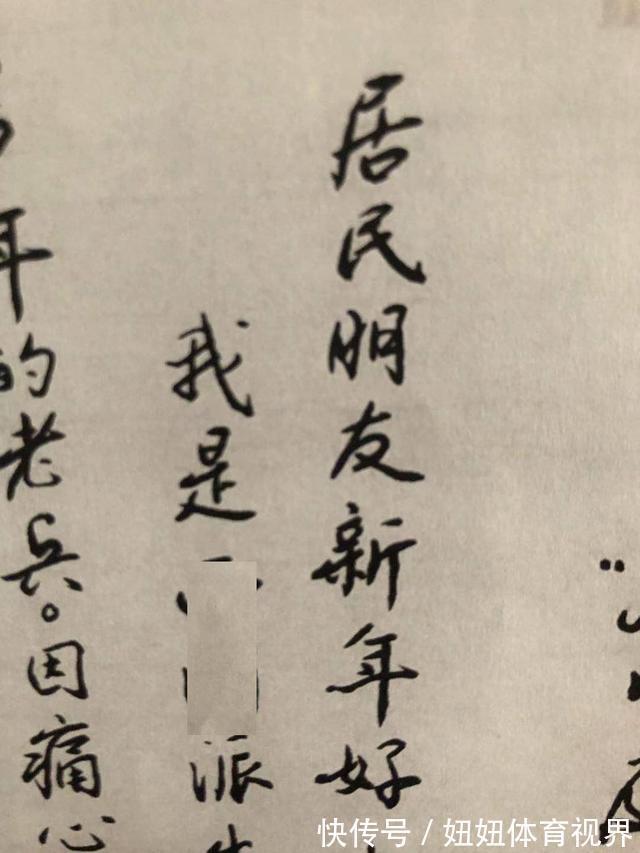 居民朋友新年好
我是派
年的老兵。因痛心
快传号／妞妞体育视界